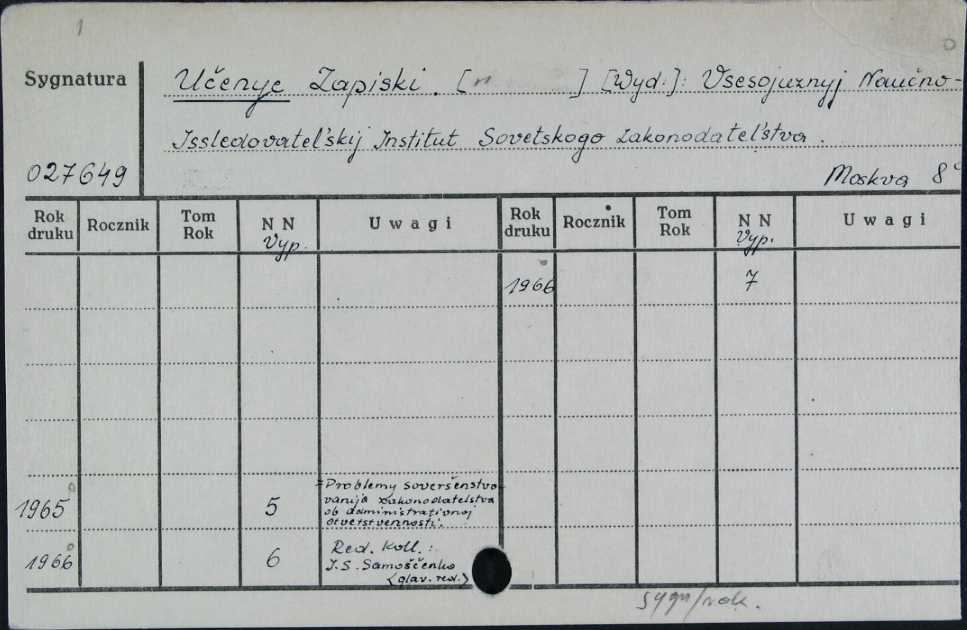 1
Sygnatura
Učenye Zapiski. [ ] [Wyd:]: Vsesojuznyj Naučno-
Issledovatel'skij Institut Sovetskogo Zakonodatel'stva.
027649
Moskva 8°
Rok druku Rocznik Tom Rok NN Vyp. Uwagi Rok druku Rocznik Tom Rok NN Vyp. Uwagi
1966 7
1965 5 =Problemy soveršenstvo-
vanija zakonodatelstva
ob administrativnoj
otvetstvennosti.
1966 6 Red. Koll.:
I.S. Samoščenko
(glav. red.)
sygn/rok.